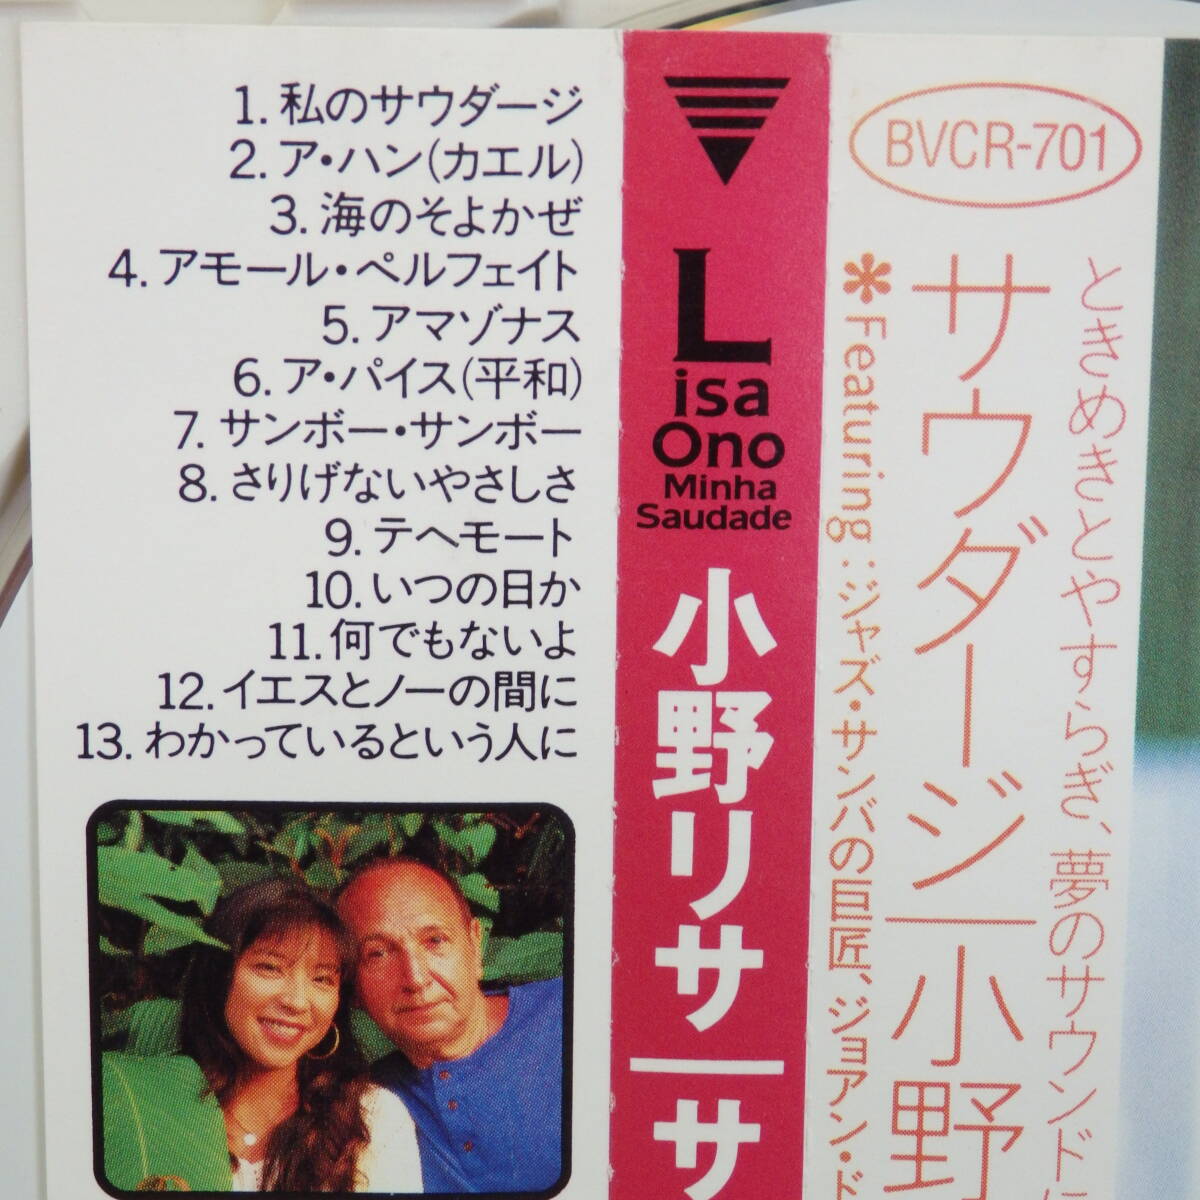 1. 私のサウダージ
2. ア・ハン(カエル)
3. 海のそよかぜ
4. アモール・ペルフェイト
5. アマゾナス
6. ア・パイス(平和)
7. サンボー・サンボー
8. さりげないやさしさ
9. テヘモート
10. いつの日か
11. 何でもないよ
12. イエスとノーの間に
13. わかっているという人に
Lisa
Ono
Minha
Saudade
小野リサ|サ
BVCR-701
ときめきとやすらぎ、夢のサウンド
サウダージ|小野
✽Featuring:ジャズ・サンバの巨匠、ジョアン・ド